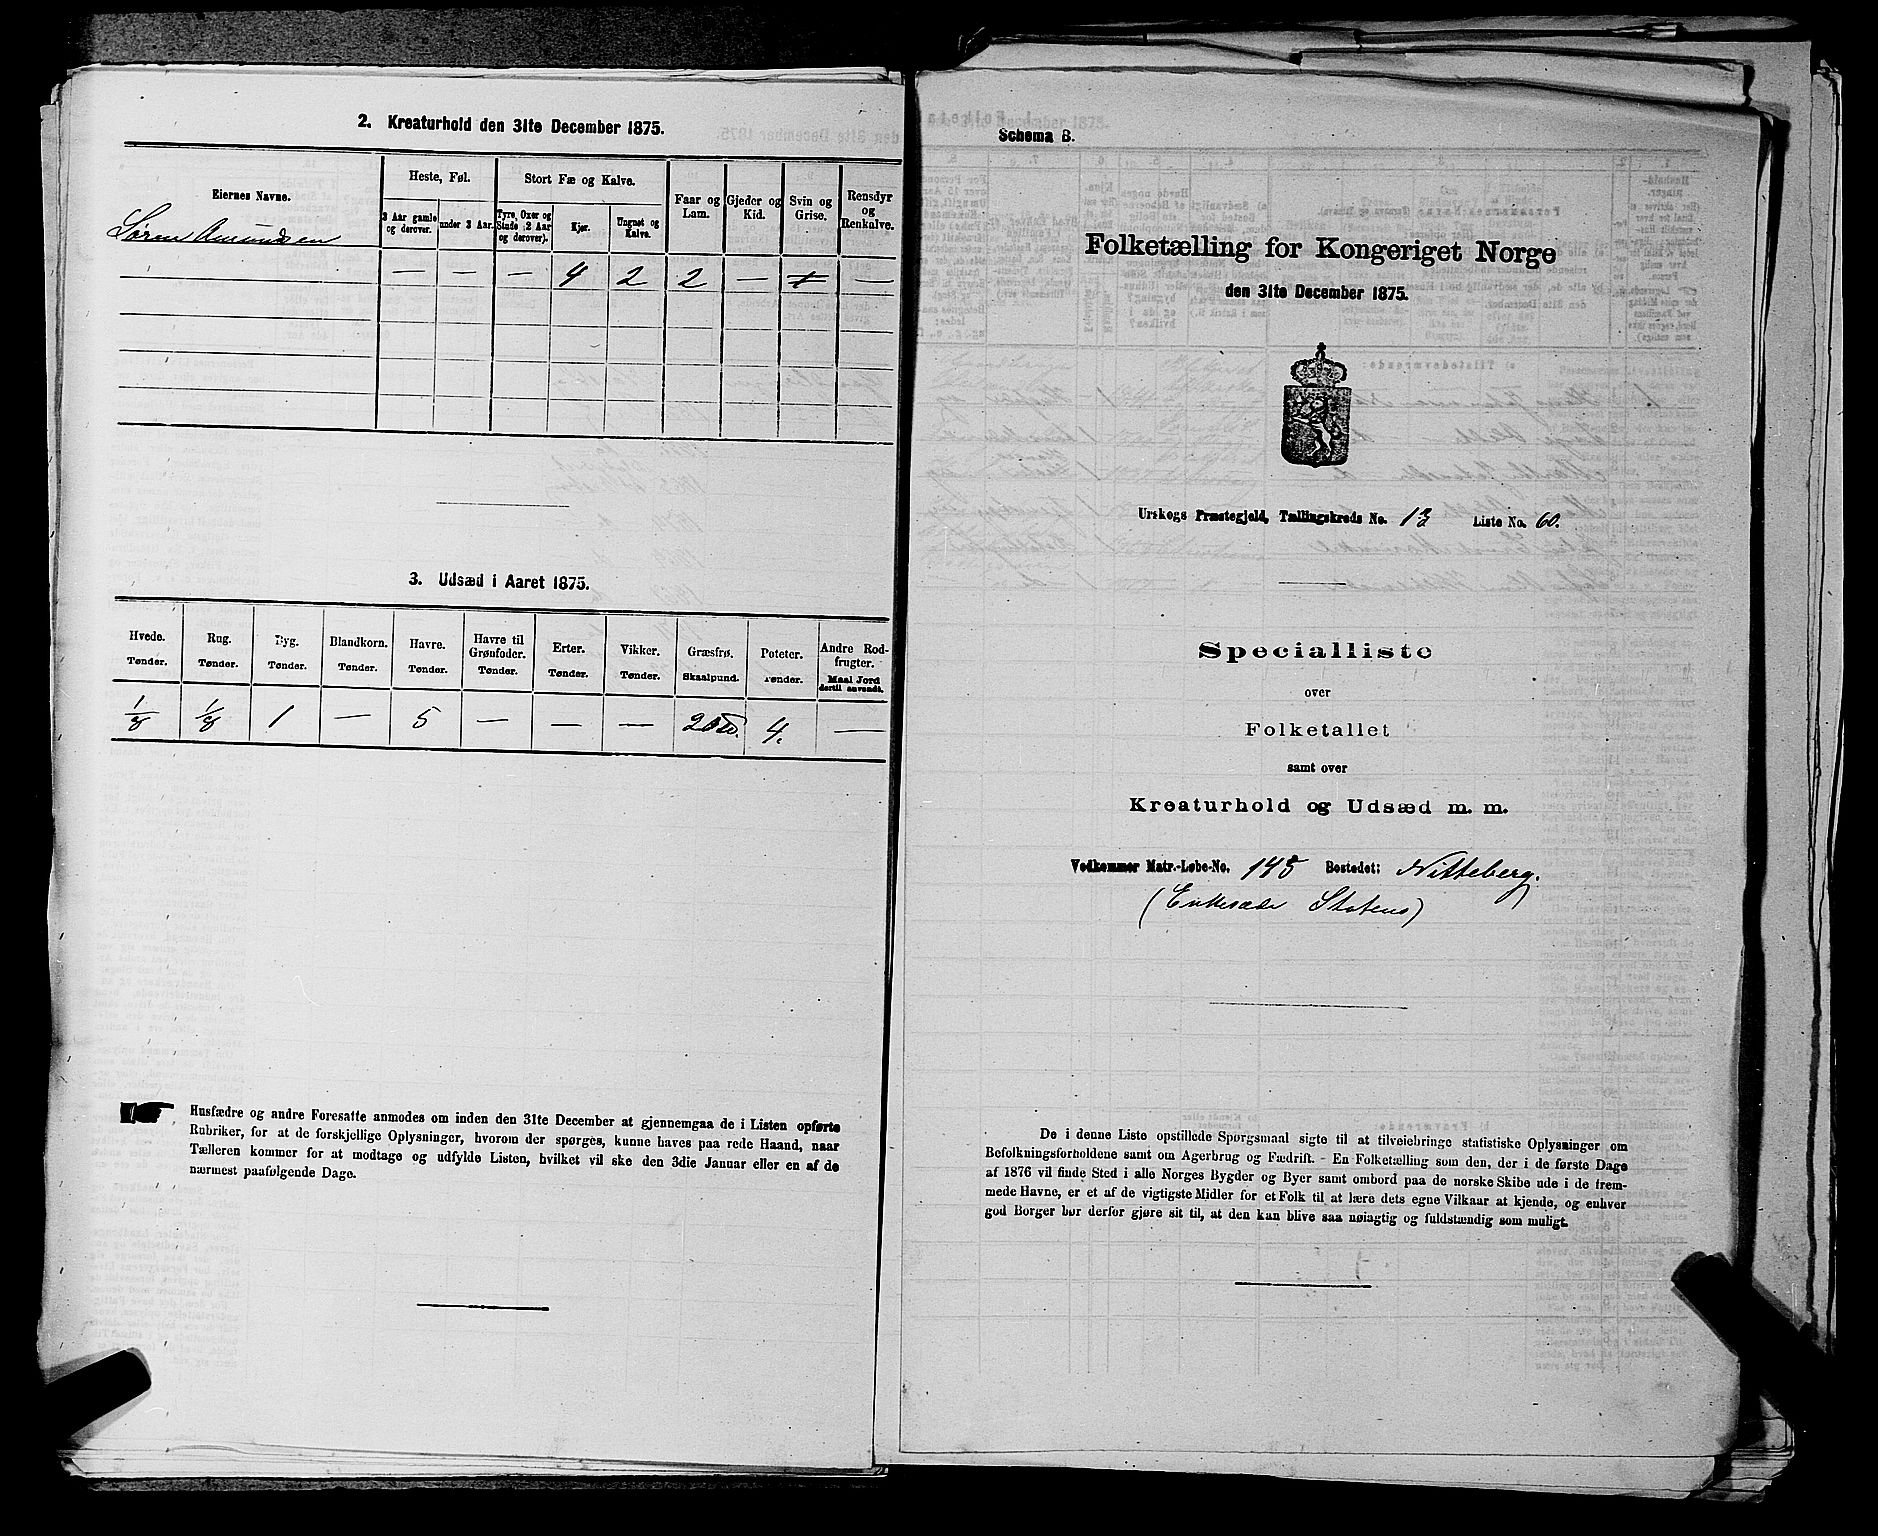 2. Kreaturhold den 31te December 1875.
Eiernes Navne.
Heste, Føl.
Stort Fæ og Kalve.
Faar og Lam.
Gjeder og Kid.
Svin og Grise.
Rensdyr og Renkalve.
3 Aar gamle og derover.
under 3 Aar.
Tyre, Oxer og Stude, 2 Aar og derover).
Kjør.
Ungnøt og Kalve.
Søren Amundsen
— — — 4 2 2 — —
3. Udsæd i Aaret 1875.
Hvede. Rug. Byg. Blandkorn. Havre. Havre til Grønfoder. Erter. Vikker. Græsfrø. Poteter. Andre Rodfrugter.
Tønder. Tønder. Tønder. Tønder. Tønder. Tønder. Tønder. Tønder. Skaalpund. Tønder. Maal Jord dertil anvendt.
1/8 1/8 1 — 5 — — — 4. —
Husfædre og andre Foresatte anmodes om inden den 31te December at gjennemgaa de i Listen opførte
Rubriker, for at de forskjellige Oplysninger, hvorom der spørges, kunne haves paa rede Haand, naar
Tælleren kommer for at modtage og udfylde Listen, hvilket vil ske den 3die Januar eller en af de
nærmest paafølgende Dage.
Schema B.
Folketælling for Kongeriget Norge
den 31te December 1875.
Urskogs Præstegjeld, Tællingskreds No. 13 Liste No. 60.
Specialliste
over
Folketallet
samt over
Kreaturhold og Udsæd m. m.
Vedkommer Matr.-Løbe-No. 148 Bostedet: Nitteberg.
(Enkesæde Statens)
De i denne Liste opstillede Spørgsmaal sigte til at tilveiebringe statistiske Oplysninger om
Befolkningsforholdene samt om Agerbrug og Fædrift. - En Folketælling som den, der i de første Dage
af 1876 vil finde Sted i alle Norges Bygder og Byer samt ombord paa de norske Skibe ude i de frem-
mede Havne, er et af de vigtigste Midler for et Folk til at lære dets egne Vilkaar at kjende, og enhver
god Borger bør derfor gjøre sit til, at den kan blive saa nøiagtig og fuldstændig som muligt.